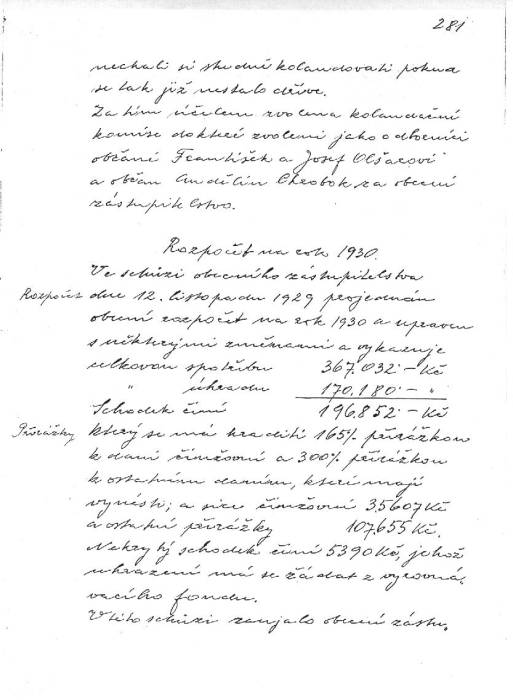 281
nechali si studně kolaudovati pokud
se tak již nestalo dříve.
Za tím účelem zvolena kolaudační
komise do které zvoleni jako odborníci
občané František a Josef Olšarovi
a občan Andělín Chrobok za obecní
zastupitelstvo.
Rozpočet na rok 1930.
Ve schůzi obecního zastupitelstva
Rozpočet dne 12. listopadu 1929 projednán
obecní rozpočet na rok 1930 a upraven
s některými změnami a vykazuje
celkovou spotřebu 367.032·– Kč
" úhradu 170.180·– "
Schodek činí 196.852·– Kč
Přirážky který se má hraditi 165% přirážkou
k dani činžovní a 300% přirážkou
k ostatním daním, které mají
vynésti; a sice činžovní 35607 Kč
a ostatní přirážky 107.655 Kč.
Nekrytý schodek činí 5390 Kč, jehož
uhrazení má se žádat z vyrovná-
vacího fondu.
V této schůzi zaujalo obecní zastu-